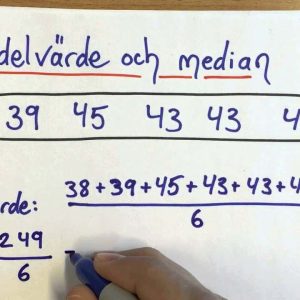 delvärde och median
39 45 43 43 4
38+39+45+43+43+4
rde:
6
249
6
=